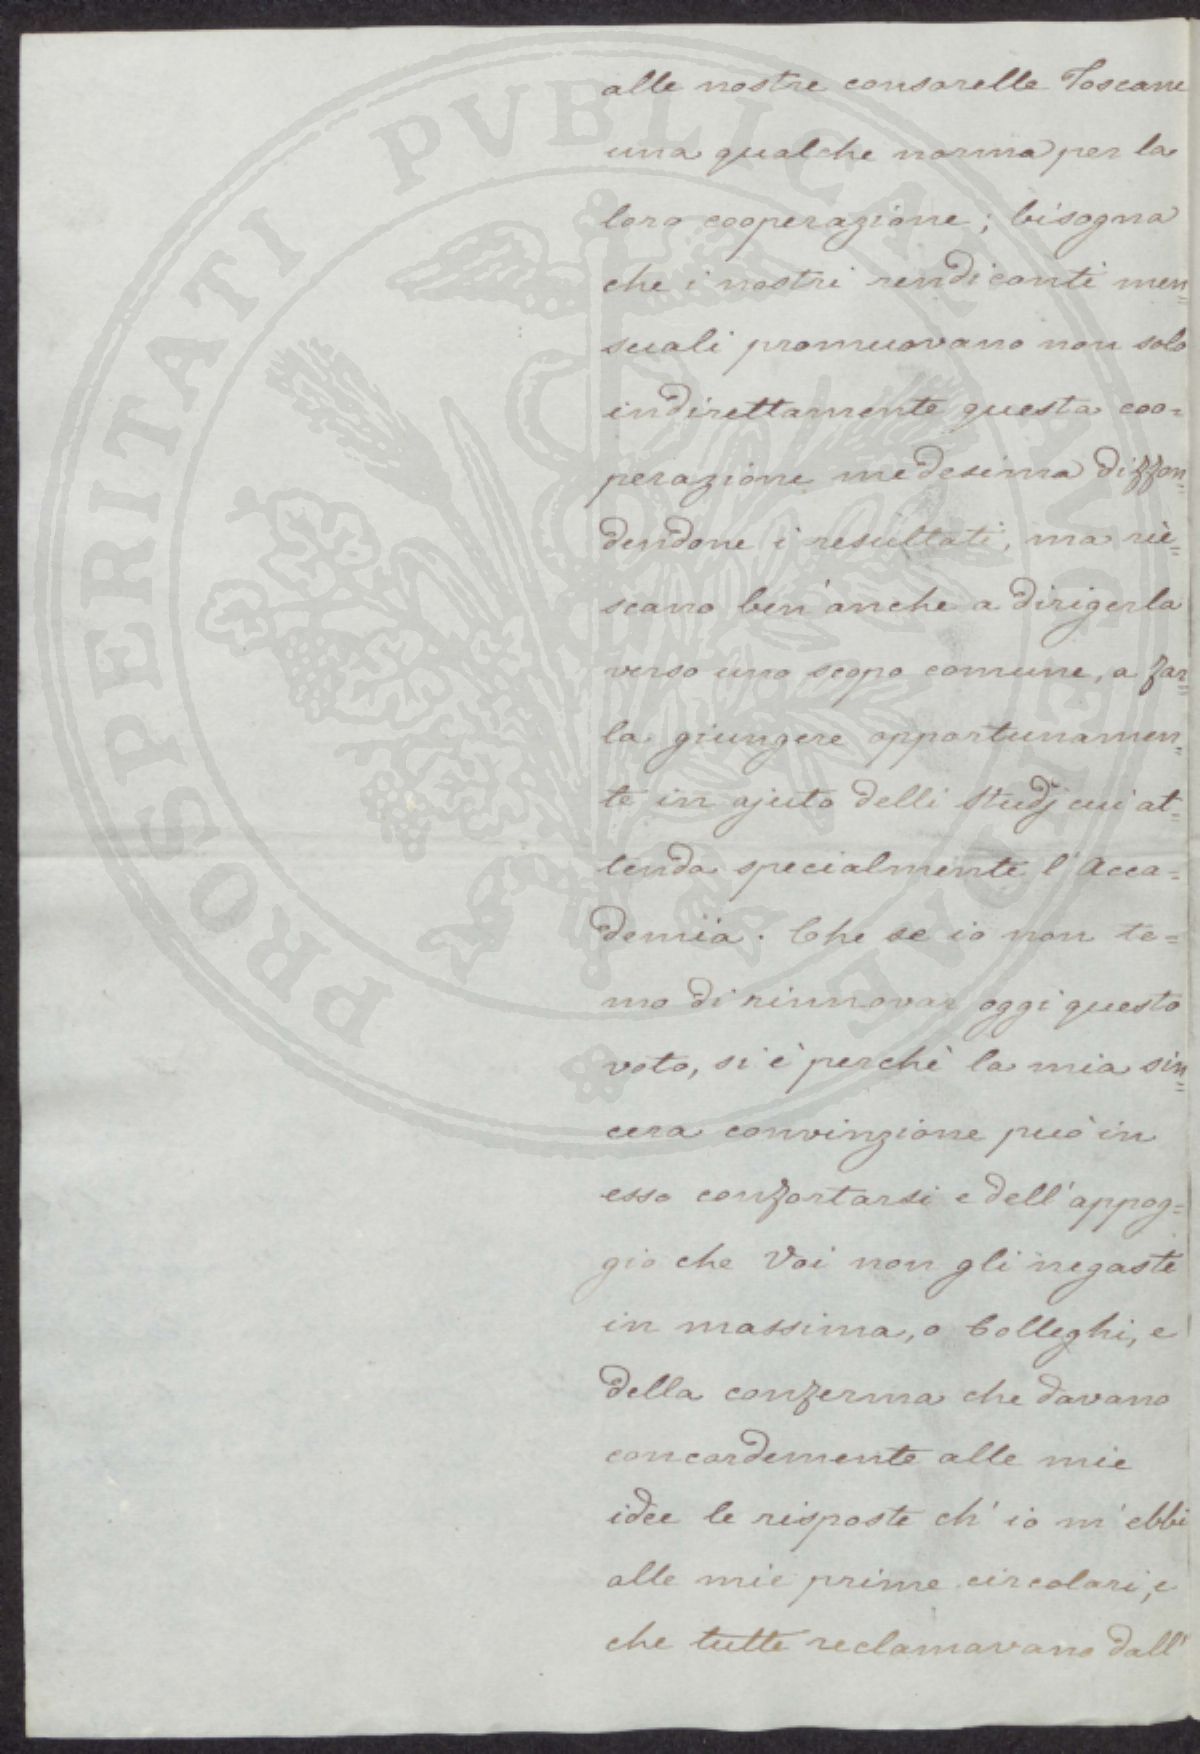 alle nostre consorelle Toscane
una qualche norma per la
loro cooperazione; bisogna
che i nostri rendiconti men=
suali promuovano non solo
indirettamente questa coo=
perazione medesima diffon=
dendone i resultati, ma rie=
scano ben'anche a dirigerla
verso uno scopo comune, a far=
la giungere opportunamen=
te in ajuto delli studj cui at=
tenda specialmente l'Acca=
demia. Che se io non te=
mo di rinnovar oggi questo
voto, si è perchè la mia sin=
cera convinzione può in
esso confortarsi e dell'appog=
gio che Voi non gli negaste
in massima, o Colleghi, e
della conferma che davano
concordemente alle mie
idee le risposte ch'io m'ebbi
alle mie prime circolari, e
che tutte reclamavano dall'
PROSPERITATI PVBLICAE AVGENDAE